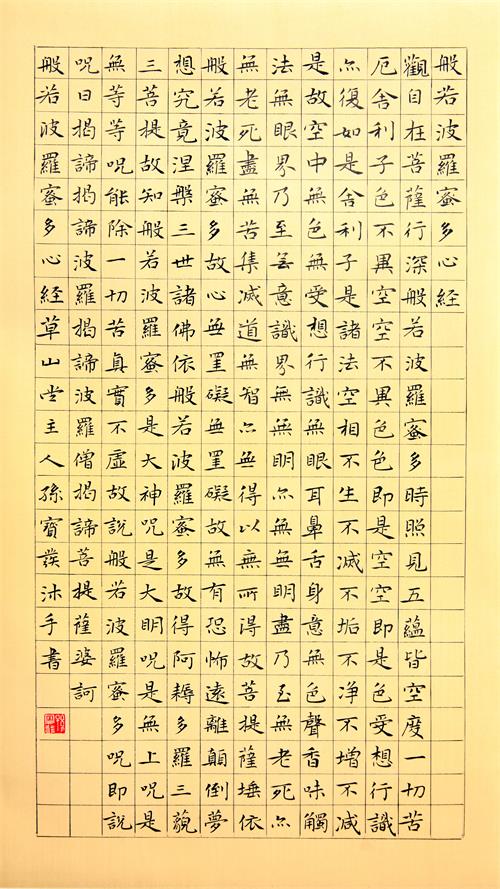 般若波羅蜜多心経
觀自在菩薩行深般若波羅蜜多時照見五蘊皆空度一切苦
厄舍利子色不異空空不異色色即是空空即是色受想行識
亦復如是舍利子是諸法空相不生不滅不垢不净不增不减
是故空中無色無受想行識無眼耳鼻舌身意無色聲香味觸
法無眼界乃至無意識界無無明亦無無明盡乃至無老死亦
無老死盡無苦集滅道無智亦無得以無所得故菩提薩埵依
般若波羅蜜多故心無罣礙無罣礙故無有恐怖遠離顛倒夢
想究竟涅槃三世諸佛依般若波羅蜜多故得阿耨多羅三藐
三菩提故知般若波羅蜜多是大神呪是大明呪是無上呪是
無等等呪能除一切苦真實不虛故說般若波羅蜜多呪即說
呪曰揭諦揭諦波羅揭諦波羅僧揭諦菩提薩婆訶
般若波羅蜜多心経草山堂主人孫寶沐手書